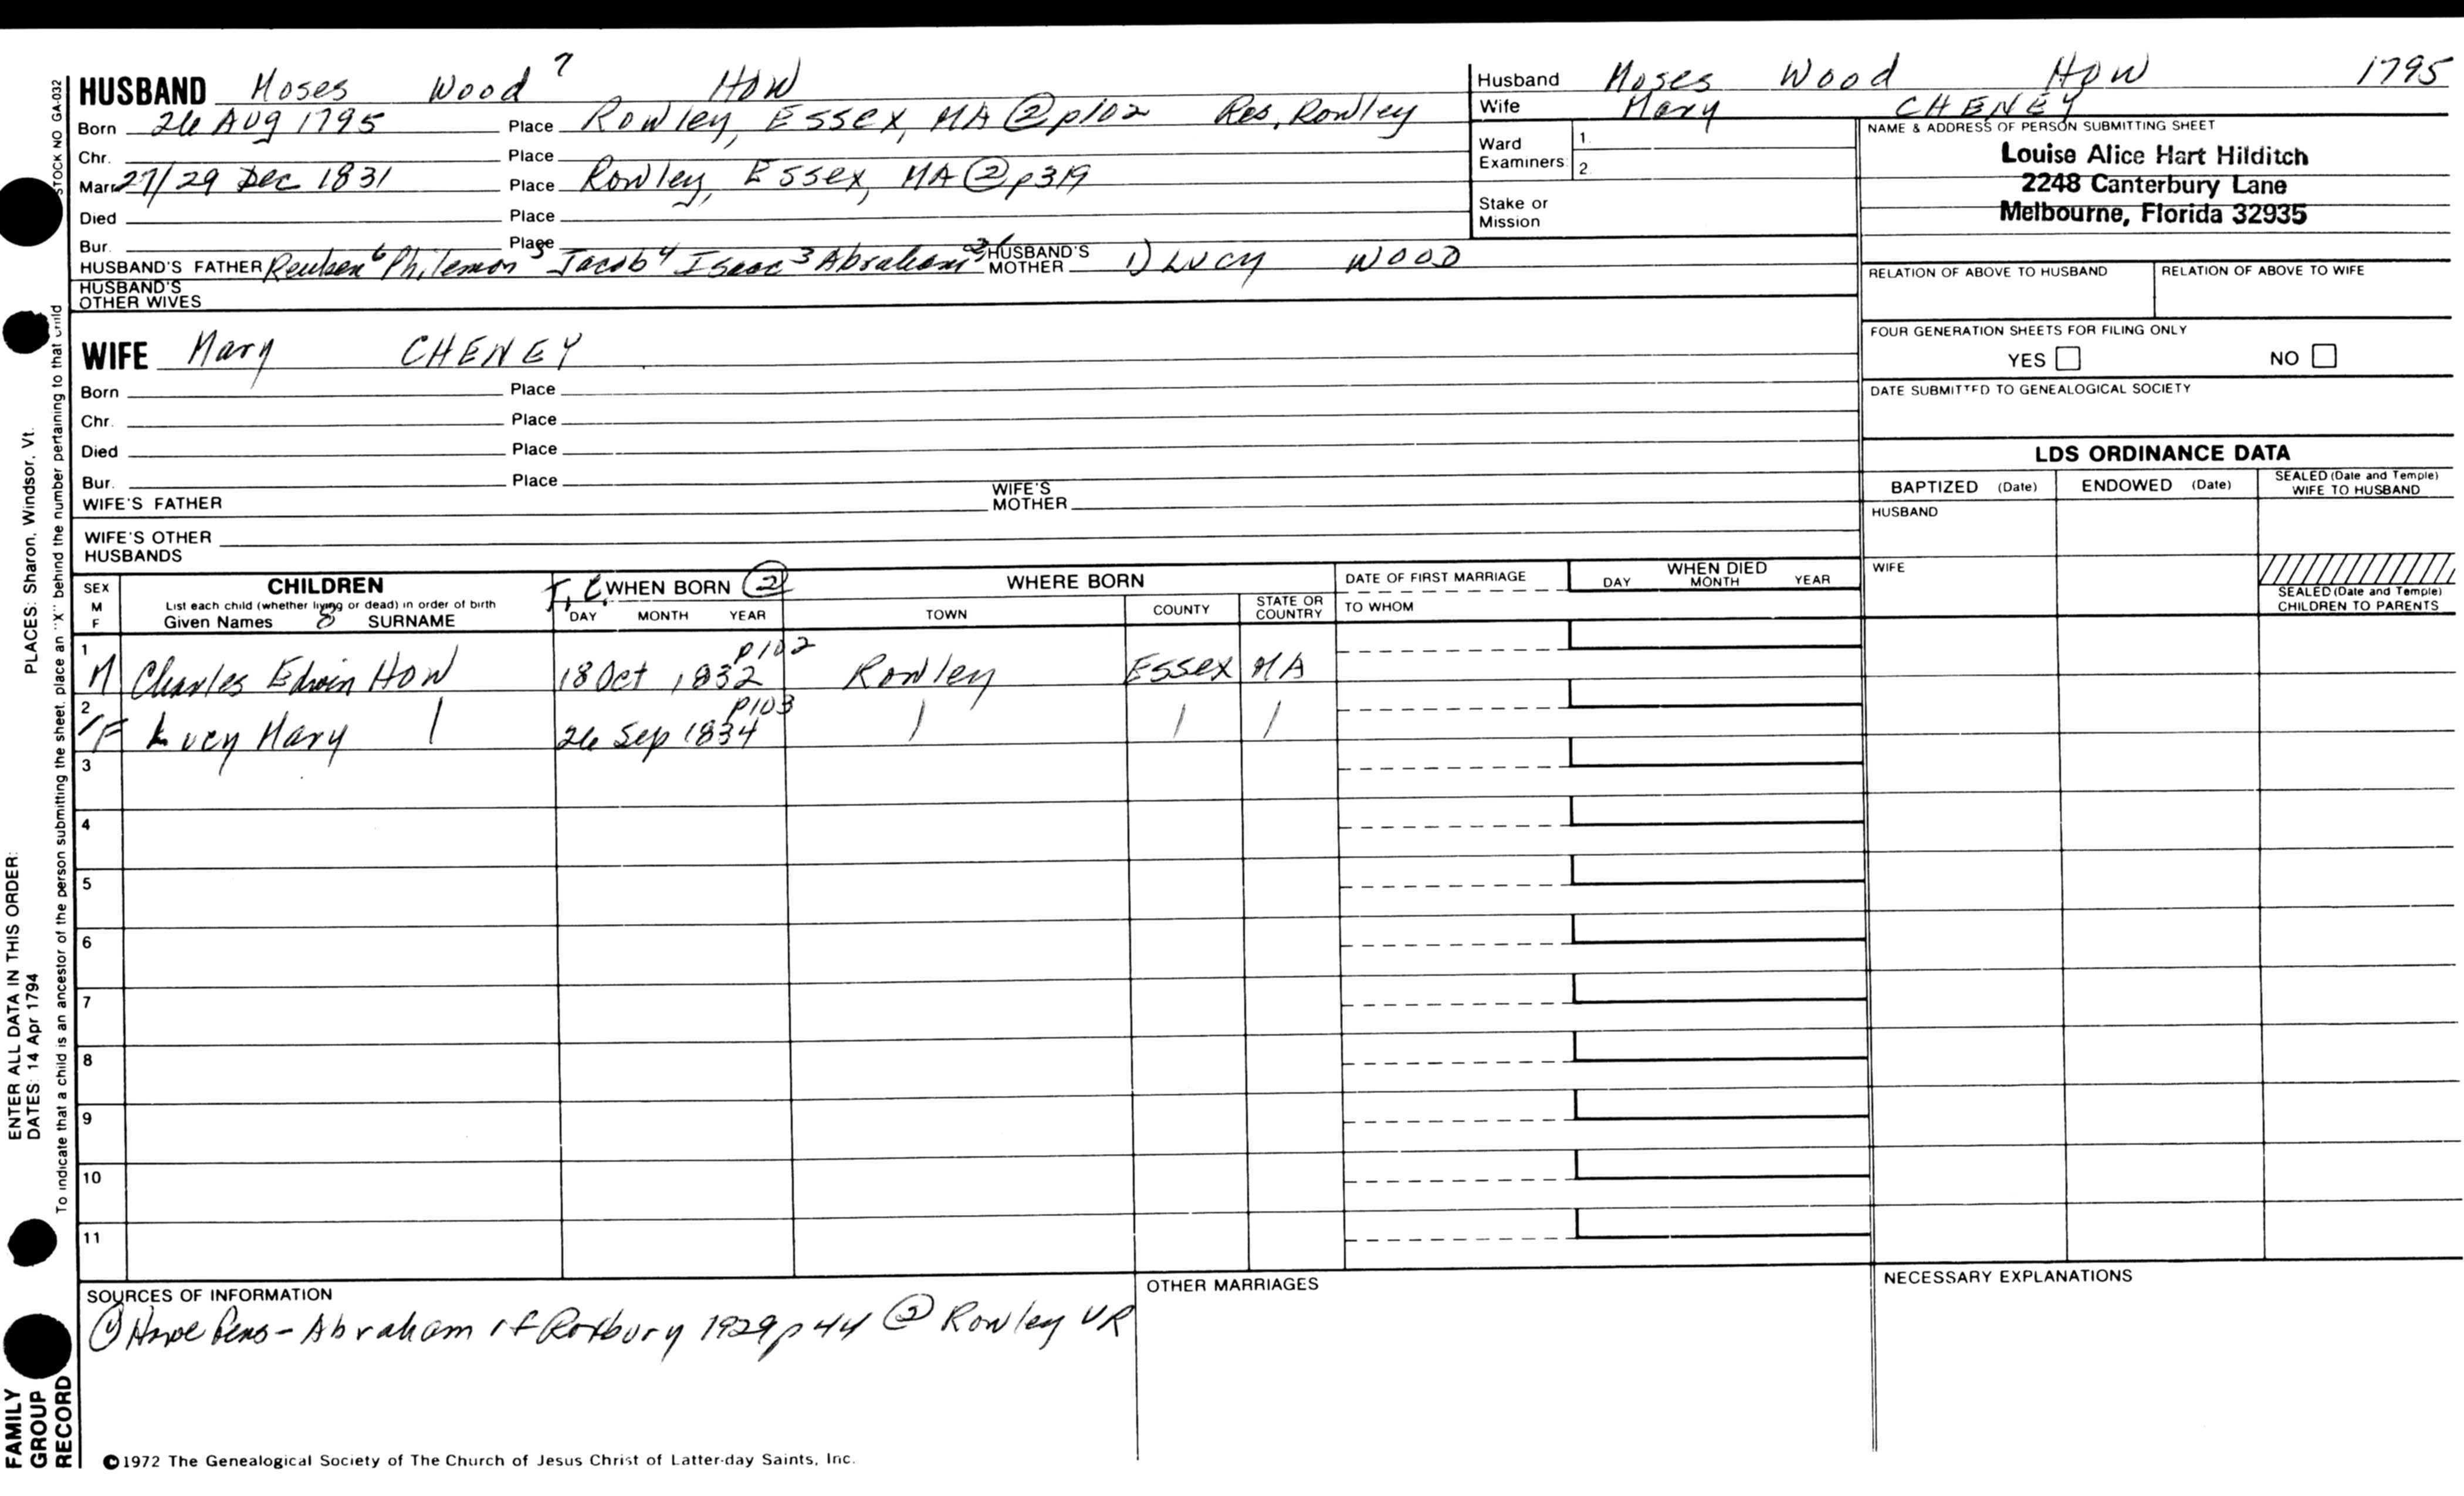 HUSBAND Moses Wood 7 HOW
Born 26 Aug 1795 Place Rowley, Essex, MA ② p102 Res. Rowley
Chr. Place
Marr 27/29 Dec 1831 Place Rowley, Essex, MA ② p319
Died Place
Bur. Place
HUSBAND'S FATHER Reuben 6 Philemon 5 Jacob 4 Isaac 3 Abraham HUSBAND'S MOTHER 1) Lucy WOOD
HUSBAND'S OTHER WIVES
WIFE Mary CHENEY
Born Place
Chr. Place
Died Place
Bur. Place
WIFE'S FATHER WIFE'S MOTHER
WIFE'S OTHER HUSBANDS
Husband Moses Wood HOW 1795
Wife Mary CHENEY
Ward Examiners 1. 2.
Stake or Mission
NAME & ADDRESS OF PERSON SUBMITTING SHEET
Louise Alice Hart Hilditch
2248 Canterbury Lane
Melbourne, Florida 32935
RELATION OF ABOVE TO HUSBAND RELATION OF ABOVE TO WIFE
FOUR GENERATION SHEETS FOR FILING ONLY
YES NO
DATE SUBMITTED TO GENEALOGICAL SOCIETY
LDS ORDINANCE DATA
BAPTIZED (Date) ENDOWED (Date) SEALED (Date and Temple) WIFE TO HUSBAND
HUSBAND
WIFE
SEALED (Date and Temple) CHILDREN TO PARENTS
SEX M F
CHILDREN
List each child (whether living or dead) in order of birth
Given Names 8 SURNAME
WHEN BORN ②
DAY MONTH YEAR
WHERE BORN
TOWN COUNTY STATE OR COUNTRY
DATE OF FIRST MARRIAGE
TO WHOM
WHEN DIED
DAY MONTH YEAR
p102
1 M Charles Edwin HOW 18 Oct 1832 Rowley Essex MA
p103
2 F Lucy Mary 26 Sep 1834
3
4
5
6
7
8
9
10
11
SOURCES OF INFORMATION
① Howe Gens - Abraham of Roxbury 1929 p 44 ② Rowley VR
OTHER MARRIAGES
NECESSARY EXPLANATIONS
©1972 The Genealogical Society of The Church of Jesus Christ of Latter-day Saints, Inc.
STOCK NO GA-032
To indicate that a child is an ancestor of the person submitting the sheet, place an "X" behind the number pertaining to that child
ENTER ALL DATA IN THIS ORDER:
DATES: 14 Apr 1794
PLACES: Sharon, Windsor, Vt.
FAMILY
GROUP
RECORD